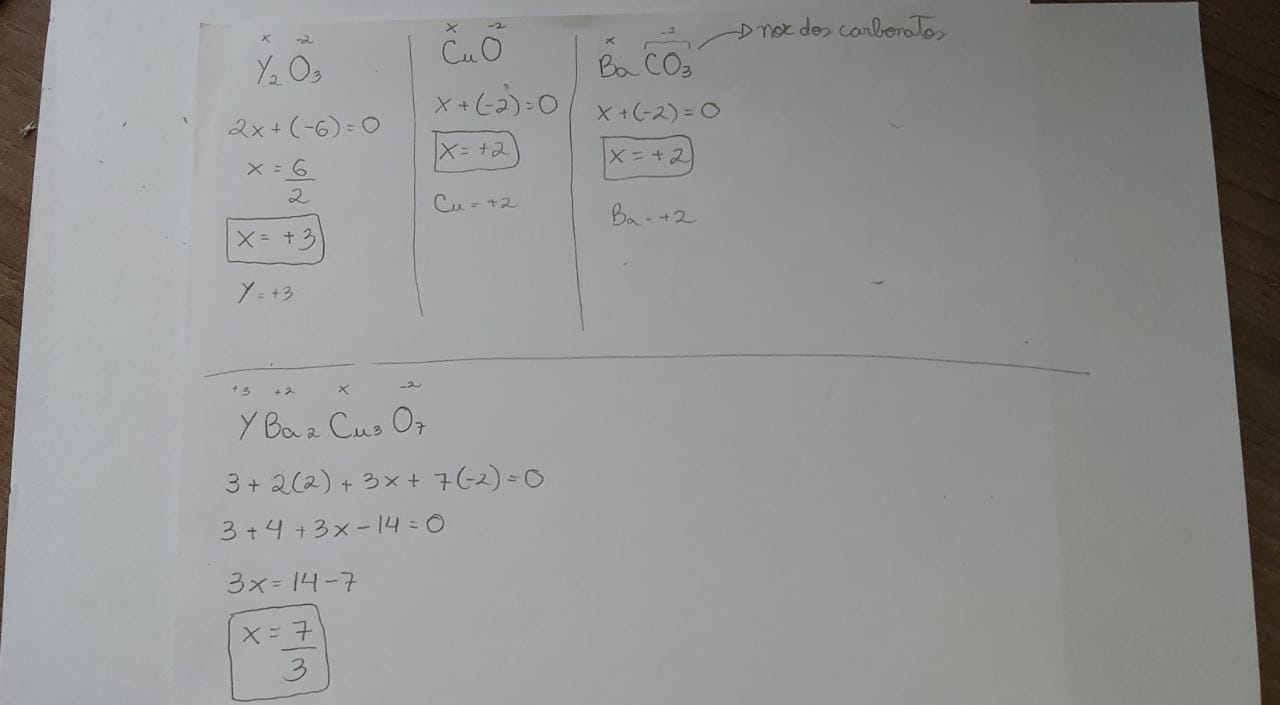 x -2
Y₂ O₃
2x + (-6) = 0
x = 6
2
x = +3
Y = +3
x -2
CuO
x + (-2) = 0
x = +2
Cu = +2
x -2
Ba CO₃ → nox dos carbonatos
x + (-2) = 0
x = +2
Ba = +2
+3 +2 x -2
Y Ba₂ Cu₃ O₇
3 + 2(2) + 3x + 7(-2) = 0
3 + 4 + 3x - 14 = 0
3x = 14 - 7
x = 7
3